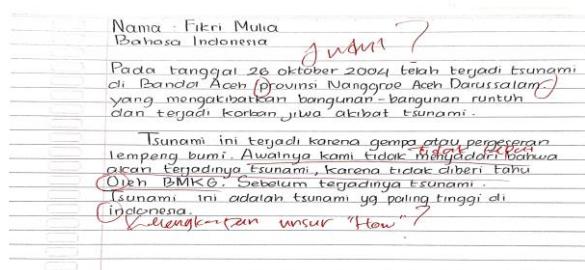 Nama : Fikri Mulia
Bahasa Indonesia
Judul ?
Pada tanggal 26 oktober 2004 telah terjadi tsunami
di Banda Aceh provinsi Nanggroe Aceh Darussalam
yang mengakibatkan bangunan-bangunan runtuh
dan terjadi korban jiwa akibat tsunami.
Tsunami ini terjadi karena gempa atau pergeseran
lempeng bumi. Awalnya kami tidak menyadari bahwa
tidak
akan terjadinya tsunami, karena tidak diberi tahu
Oleh BMKG. Sebelum terjadinya tsunami.
Tsunami ini adalah tsunami yg paling tinggi di
indonesia.
unsur "How" ?